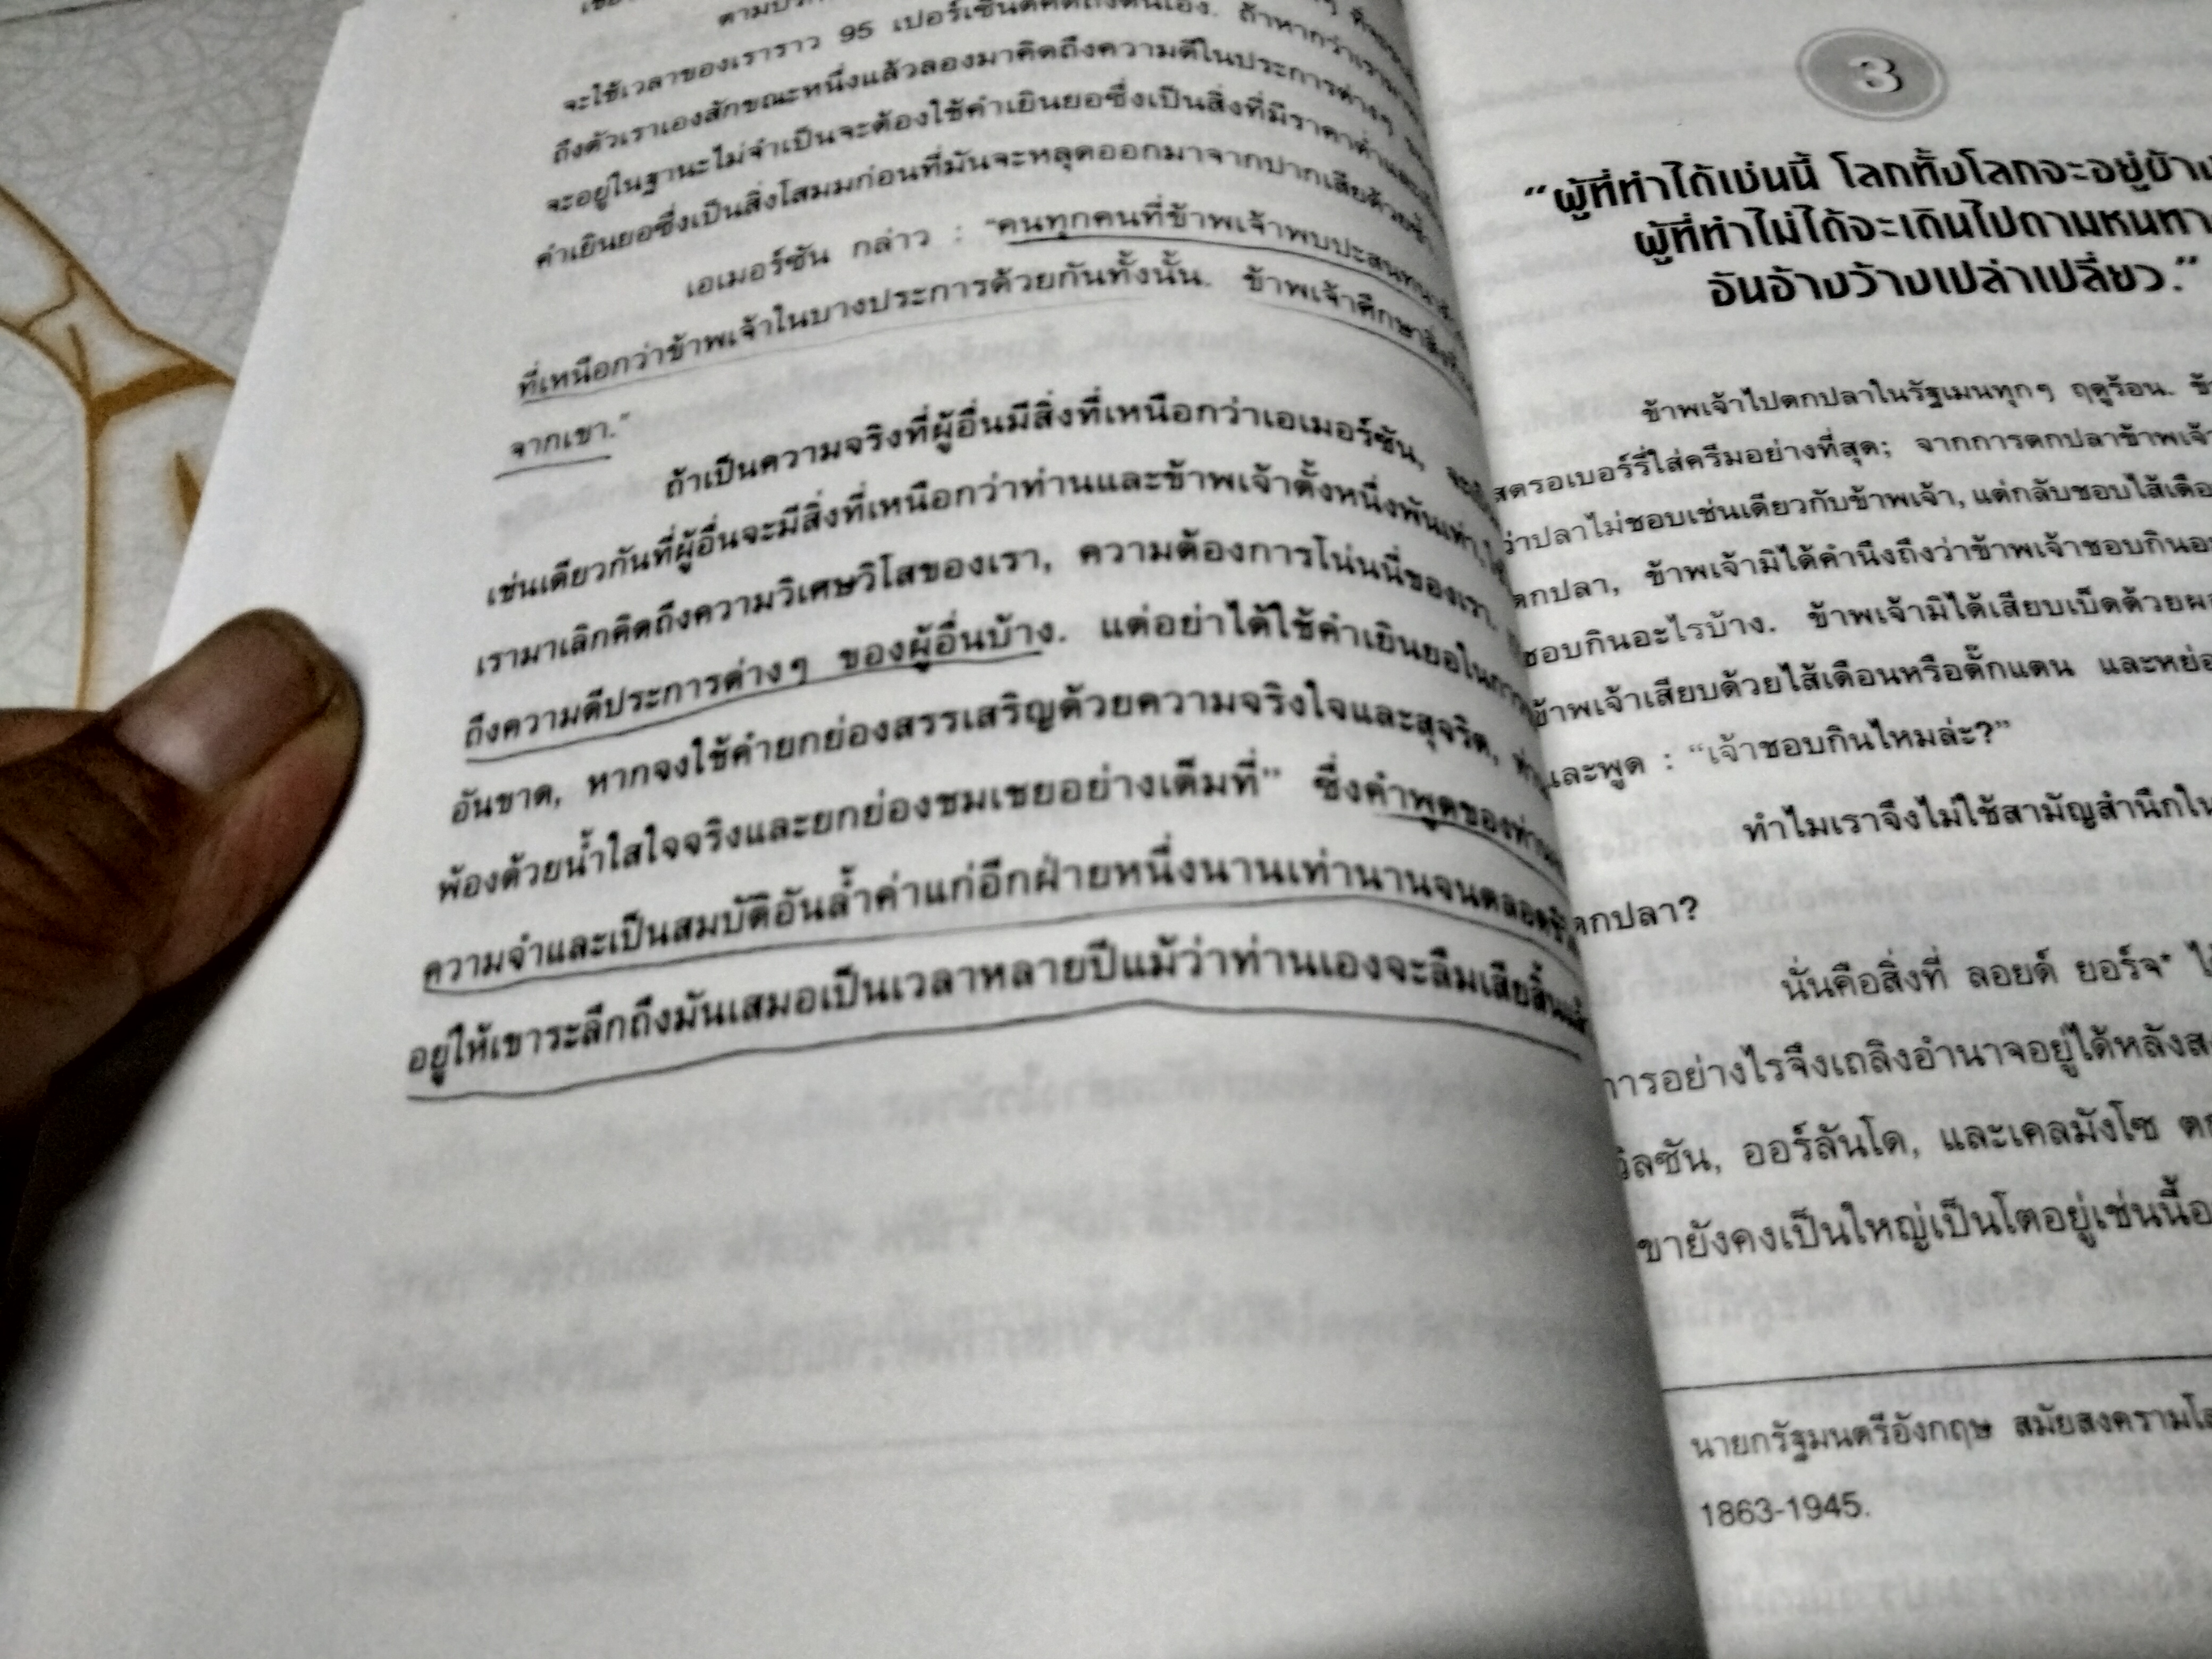 จะใช้เวลาของเราราว 95 เปอร์เซ็นต์คิดถึงตนเอง. ถ้าหากว่าเรา
ถึงตัวเราเองสักขณะหนึ่งแล้วลองมาคิดถึงความดีในประการต่างๆ
จะอยู่ในฐานะไม่จำเป็นจะต้องใช้คำเยินยอซึ่งเป็นสิ่งที่มีราคาต่ำและ
คำเยินยอซึ่งเป็นสิ่งโสมมก่อนที่มันจะหลุดออกมาจากปากเสียด้วยซ้ำ
เอเมอร์ซัน กล่าว : “คนทุกคนที่ข้าพเจ้าพบปะสนทนา
ที่เหนือกว่าข้าพเจ้าในบางประการด้วยกันทั้งนั้น. ข้าพเจ้าศึกษาสิ่ง
จากเขา.”
ถ้าเป็นความจริงที่ผู้อื่นมีสิ่งที่เหนือกว่าเอเมอร์ซัน,
เช่นเดียวกันที่ผู้อื่นจะมีสิ่งที่เหนือกว่าท่านและข้าพเจ้าตั้งหนึ่งพันเท่า,
เรามาเลิกคิดถึงความวิเศษวิโสของเรา, ความต้องการโน่นนี่ของเรา.
ถึงความดีประการต่างๆ ของผู้อื่นบ้าง. แต่อย่าได้ใช้คำเยินยอใน
อันขาด, หากจงใช้คำยกย่องสรรเสริญด้วยความจริงใจและสุจริต,
พ้องด้วยน้ำใสใจจริงและยกย่องชมเชยอย่างเต็มที่” ซึ่งคำพูดของท่าน
ความจำและเป็นสมบัติอันล้ำค่าแก่อีกฝ่ายหนึ่งนานเท่านานจนตลอด
อยู่ให้เขาระลึกถึงมันเสมอเป็นเวลาหลายปีแม้ว่าท่านเองจะลืมเสียสิ้นแล้ว
3
“ผู้ที่ทำได้เช่นนี้ โลกทั้งโลกจะอยู่ข้าง
ผู้ที่ทำไม่ได้จะเดินไปตามหนทาง
อันอ้างว้างเปล่าเปลี่ยว.”
ข้าพเจ้าไปตกปลาในรัฐเมนทุกๆ ฤดูร้อน.
สตรอเบอร์รี่ใส่ครีมอย่างที่สุด; จากการตกปลาข้าพเจ้า
ว่าปลาไม่ชอบเช่นเดียวกับข้าพเจ้า, แต่กลับชอบไส้เดือน
ตกปลา, ข้าพเจ้ามิได้คำนึงถึงว่าข้าพเจ้าชอบกินอะ
ชอบกินอะไรบ้าง. ข้าพเจ้ามิได้เสียบเบ็ดด้วยผล
ข้าพเจ้าเสียบด้วยไส้เดือนหรือตั๊กแตน และหย่อน
และพูด : “เจ้าชอบกินไหมล่ะ?”
ทำไมเราจึงไม่ใช้สามัญสำนึกใน
ตกปลา?
นั่นคือสิ่งที่ ลอยด์ ยอร์จ* ได้
การอย่างไรจึงเถลิงอำนาจอยู่ได้หลังส
วิลซัน, ออร์ลันโด, และเคลมังโซ ตก
เขายังคงเป็นใหญ่เป็นโตอยู่เช่นนี้
นายกรัฐมนตรีอังกฤษ สมัยสงครามโล
1863-1945.